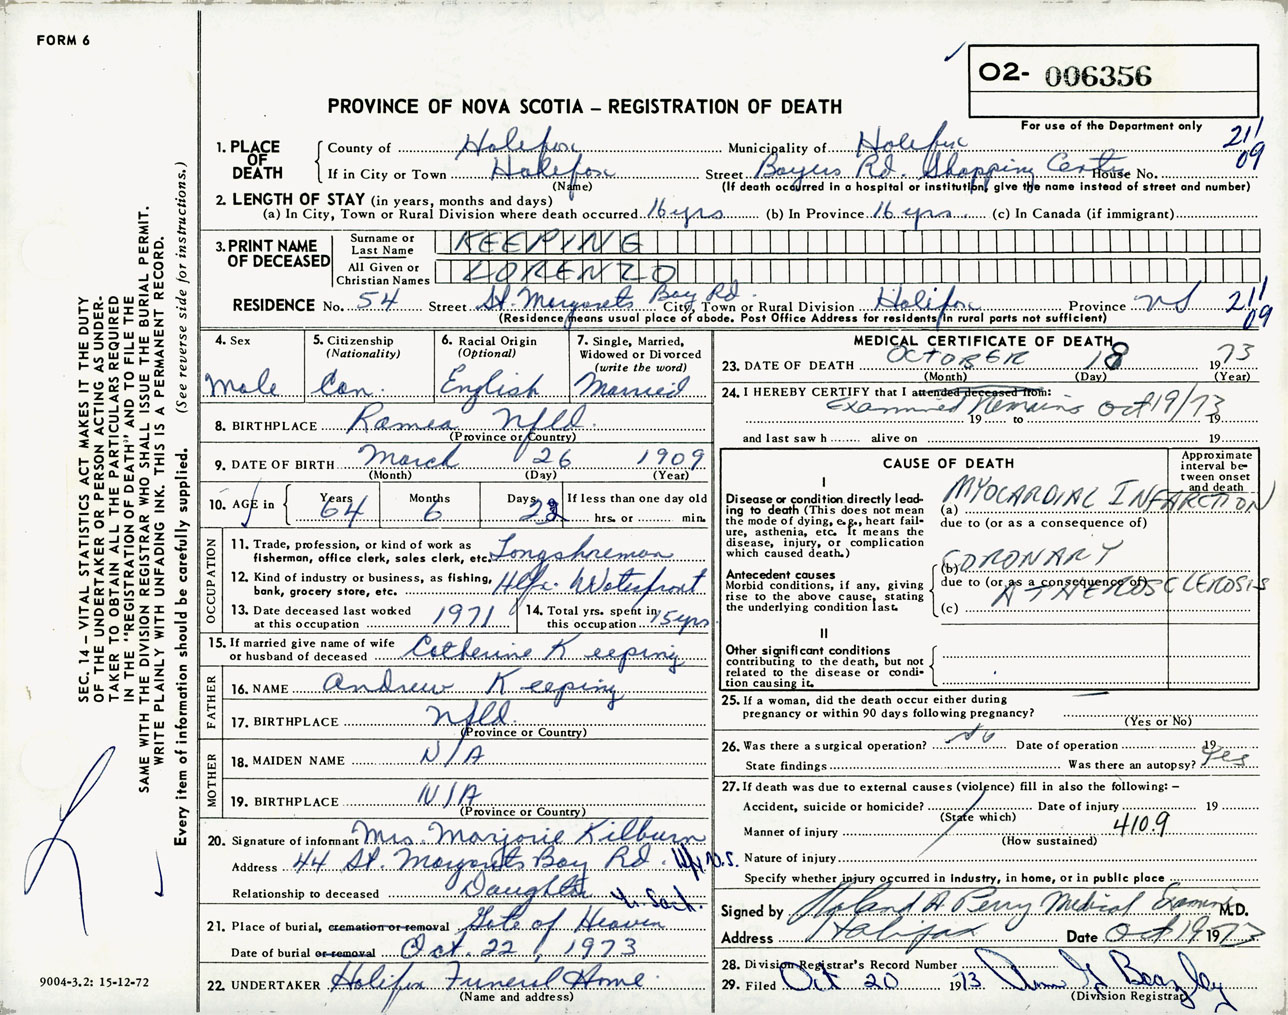 FORM 6
O2- 006356
PROVINCE OF NOVA SCOTIA – REGISTRATION OF DEATH
For use of the Department only
21/09
1. PLACE OF DEATH
County of Halifax Municipality of Halifax
If in City or Town Halifax Street Bayers Rd. Shopping Centre House No.
(Name) (If death occurred in a hospital or institution, give the name instead of street and number)
2. LENGTH OF STAY (in years, months and days)
(a) In City, Town or Rural Division where death occurred 16 yrs (b) In Province 16 yrs. (c) In Canada (if immigrant)
3. PRINT NAME OF DECEASED
Surname or Last Name KEEPING
All Given or Christian Names LORENZO
RESIDENCE No. 54 Street St. Margarets Bay Rd. City, Town or Rural Division Halifax Province NS 21/09
(Residence means usual place of abode. Post Office Address for residents in rural parts not sufficient)
4. Sex
Male
5. Citizenship (Nationality)
Can.
6. Racial Origin (Optional)
English
7. Single, Married, Widowed or Divorced (write the word)
Married
8. BIRTHPLACE Ramea Nfld.
(Province or Country)
9. DATE OF BIRTH March 26 1909
(Month) (Day) (Year)
10. AGE in Years 64 Months 6 Days If less than one day old hrs. or min.
OCCUPATION
11. Trade, profession, or kind of work as fisherman, office clerk, sales clerk, etc. Longshoreman
12. Kind of industry or business, as fishing, bank, grocery store, etc. Hfx. Waterfront
13. Date deceased last worked at this occupation 1971
14. Total yrs. spent in this occupation 15 yrs
15. If married give name of wife or husband of deceased Catherine Keeping
FATHER
16. NAME Andrew Keeping
17. BIRTHPLACE Nfld.
(Province or Country)
MOTHER
18. MAIDEN NAME N/A
19. BIRTHPLACE N/A
(Province or Country)
20. Signature of informant Mrs. Marjorie Kilburn
Address 44 St. Margarets Bay Rd. Hfx N.S.
Relationship to deceased Daughter
21. Place of burial, cremation or removal Gate of Heaven
Date of burial or removal Oct. 22, 1973
22. UNDERTAKER Halifax Funeral Home
(Name and address)
MEDICAL CERTIFICATE OF DEATH
23. DATE OF DEATH OCTOBER 18 1973
(Month) (Day) (Year)
24. I HEREBY CERTIFY that I attended deceased from:
Examined Remains Oct 19/73
19 to 19
and last saw h alive on 19
CAUSE OF DEATH
Approximate interval between onset and death
I
Disease or condition directly leading to death (This does not mean the mode of dying, e.g., heart failure, asthenia, etc. It means the disease, injury, or complication which caused death.)
(a) MYOCARDIAL INFARCTION
due to (or as a consequence of)
Antecedent causes
Morbid conditions, if any, giving rise to the above cause, stating the underlying condition last.
(b) CORONARY
due to (or as a consequence of)
ATHEROSCLEROSIS
(c)
II
Other significant conditions contributing to the death, but not related to the disease or condition causing it.
25. If a woman, did the death occur either during pregnancy or within 90 days following pregnancy?
(Yes or No)
26. Was there a surgical operation? No Date of operation 19
State findings Was there an autopsy? Yes
27. If death was due to external causes (violence) fill in also the following: –
Accident, suicide or homicide? Date of injury 19
(State which)
Manner of injury 410.9
(How sustained)
Nature of injury
Specify whether injury occurred in industry, in home, or in public place
Signed by Roland A Perry Medical Examiner M.D.
Address Halifax Date Oct 19 1973
28. Division Registrar's Record Number
29. Filed Oct 20 1973
(Division Registrar)
SEC. 14 – VITAL STATISTICS ACT MAKES IT THE DUTY
OF THE UNDERTAKER OR PERSON ACTING AS UNDER-
TAKER TO OBTAIN ALL THE PARTICULARS REQUIRED
IN THE "REGISTRATION OF DEATH" AND TO FILE THE
SAME WITH THE DIVISION REGISTRAR WHO SHALL ISSUE THE BURIAL PERMIT.
WRITE PLAINLY WITH UNFADING INK. THIS IS A PERMANENT RECORD.
Every item of information should be carefully supplied. (See reverse side for instructions.)
9004-3.2: 15-12-72